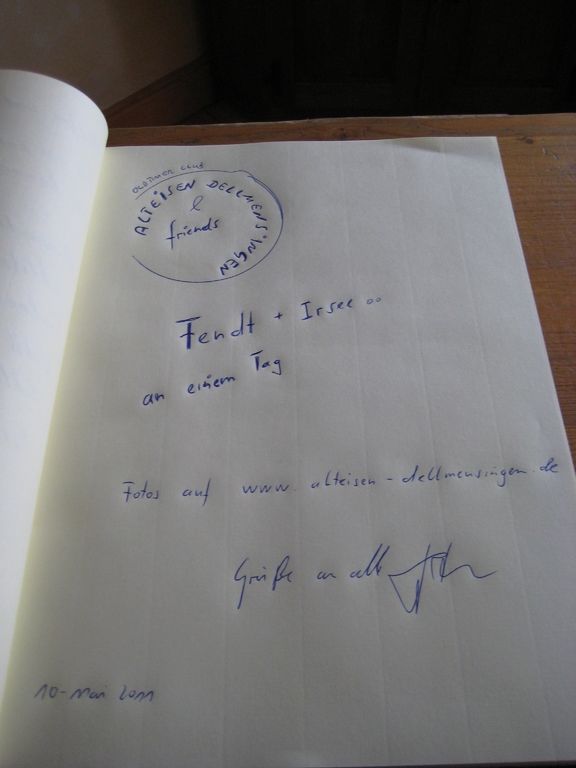 OLDTIMER CLUB
ALTEISEN DELLMENSINGEN
&
friends
Fendt + Irsee
an einem Tag
Fotos auf www.alteisen-dellmensingen.de
Grüße an alle
10-Mai 2011